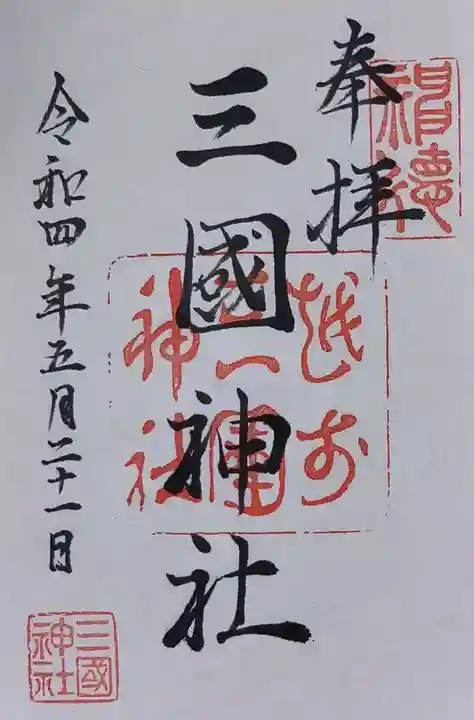 奉拝
三國神社
令和四年五月二十一日
越前
三國
神社
三國
神社